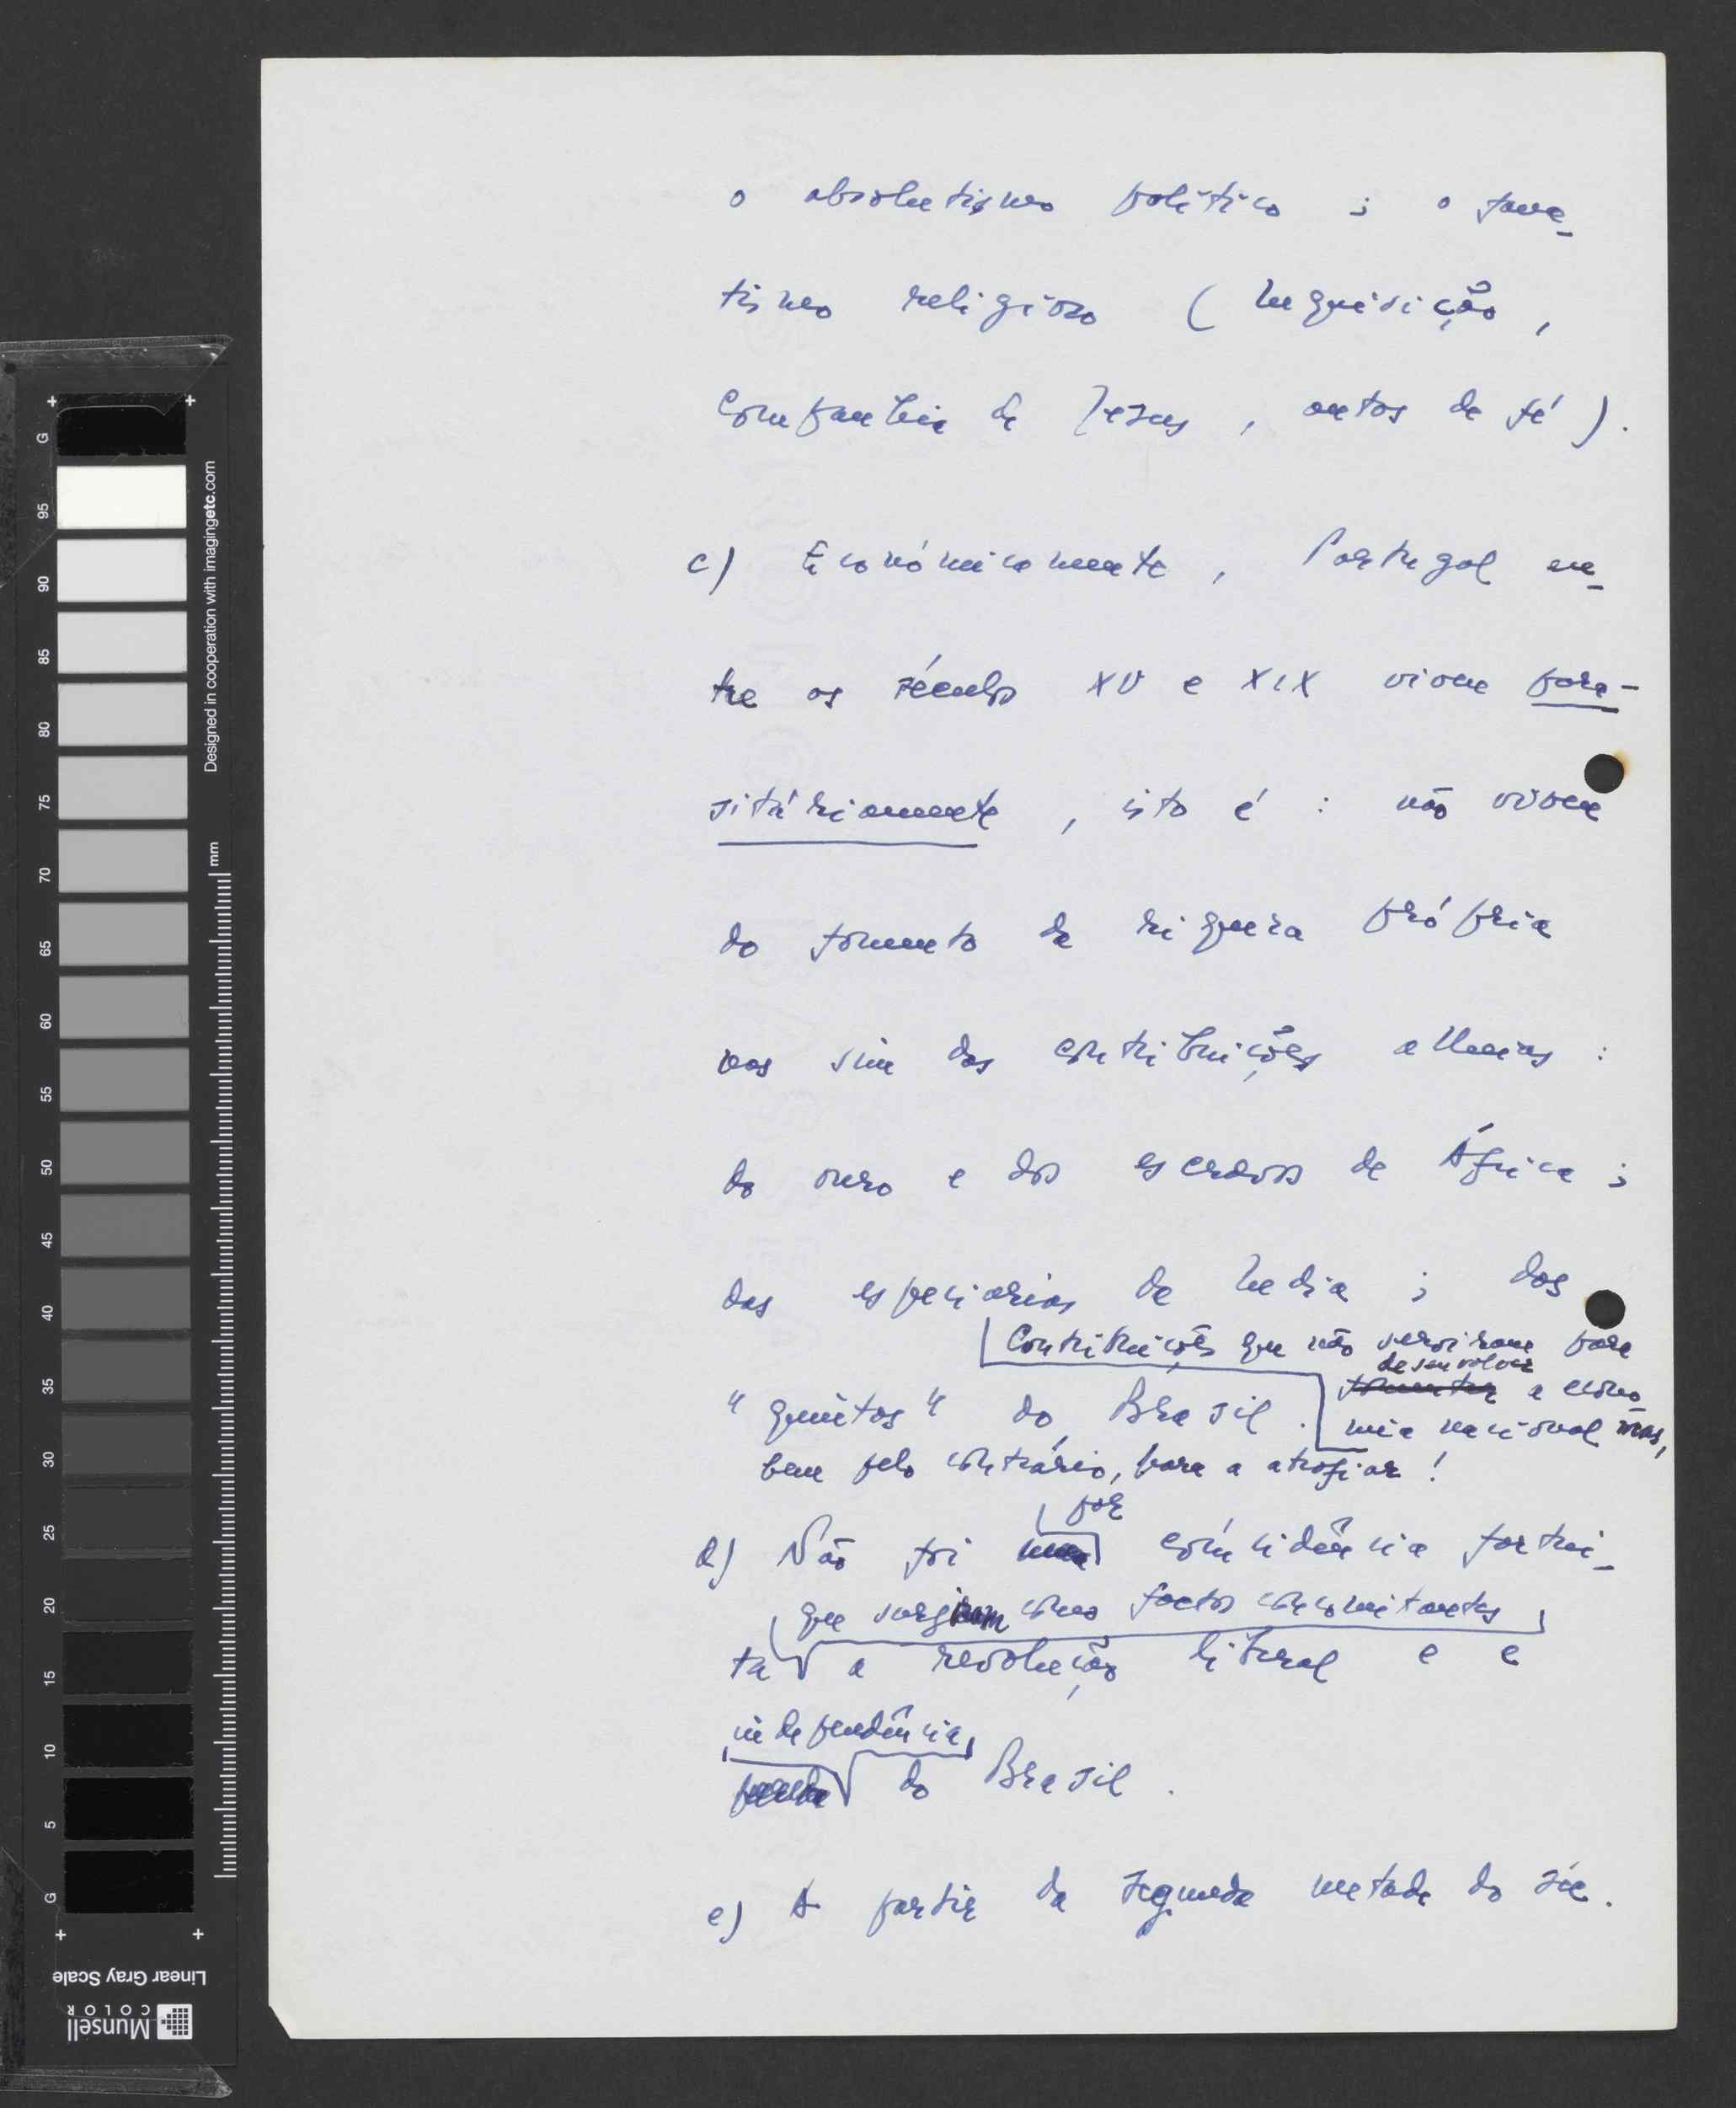 o absolutismo político ; o fana-
tismo religioso ( Inquisição ,
Companhia de Jesus , autos de fé ) .
c) Económicamente , Portugal en-
tre os séculos XV e XIX viveu para-
sitáriamente , isto é : não viveu
do fomento da riqueza própria
mas sim das contribuições alheias :
do ouro e dos escravos de África ;
das especiarias da India ; dos
Contribuições que não serviram para
desenvolver
"quintos" do Brasil . fomentar a econo
mia nacional mas,
bem pelo contrário, para a atrofiar !
por
d) Não foi uma coíncidência fortui-
que surgiram como factos concomitantes
ta a revolução liberal e a
independência
perda do Brasil .
e) A partir da segunda metade do séc.
G 95 90 85 80 75 70 65 60 55 50 45 40 35 30 25 20 15 10 5 G
Designed in cooperation with imagingetc.com
mm
Linear Gray Scale
Munsell
COLOR